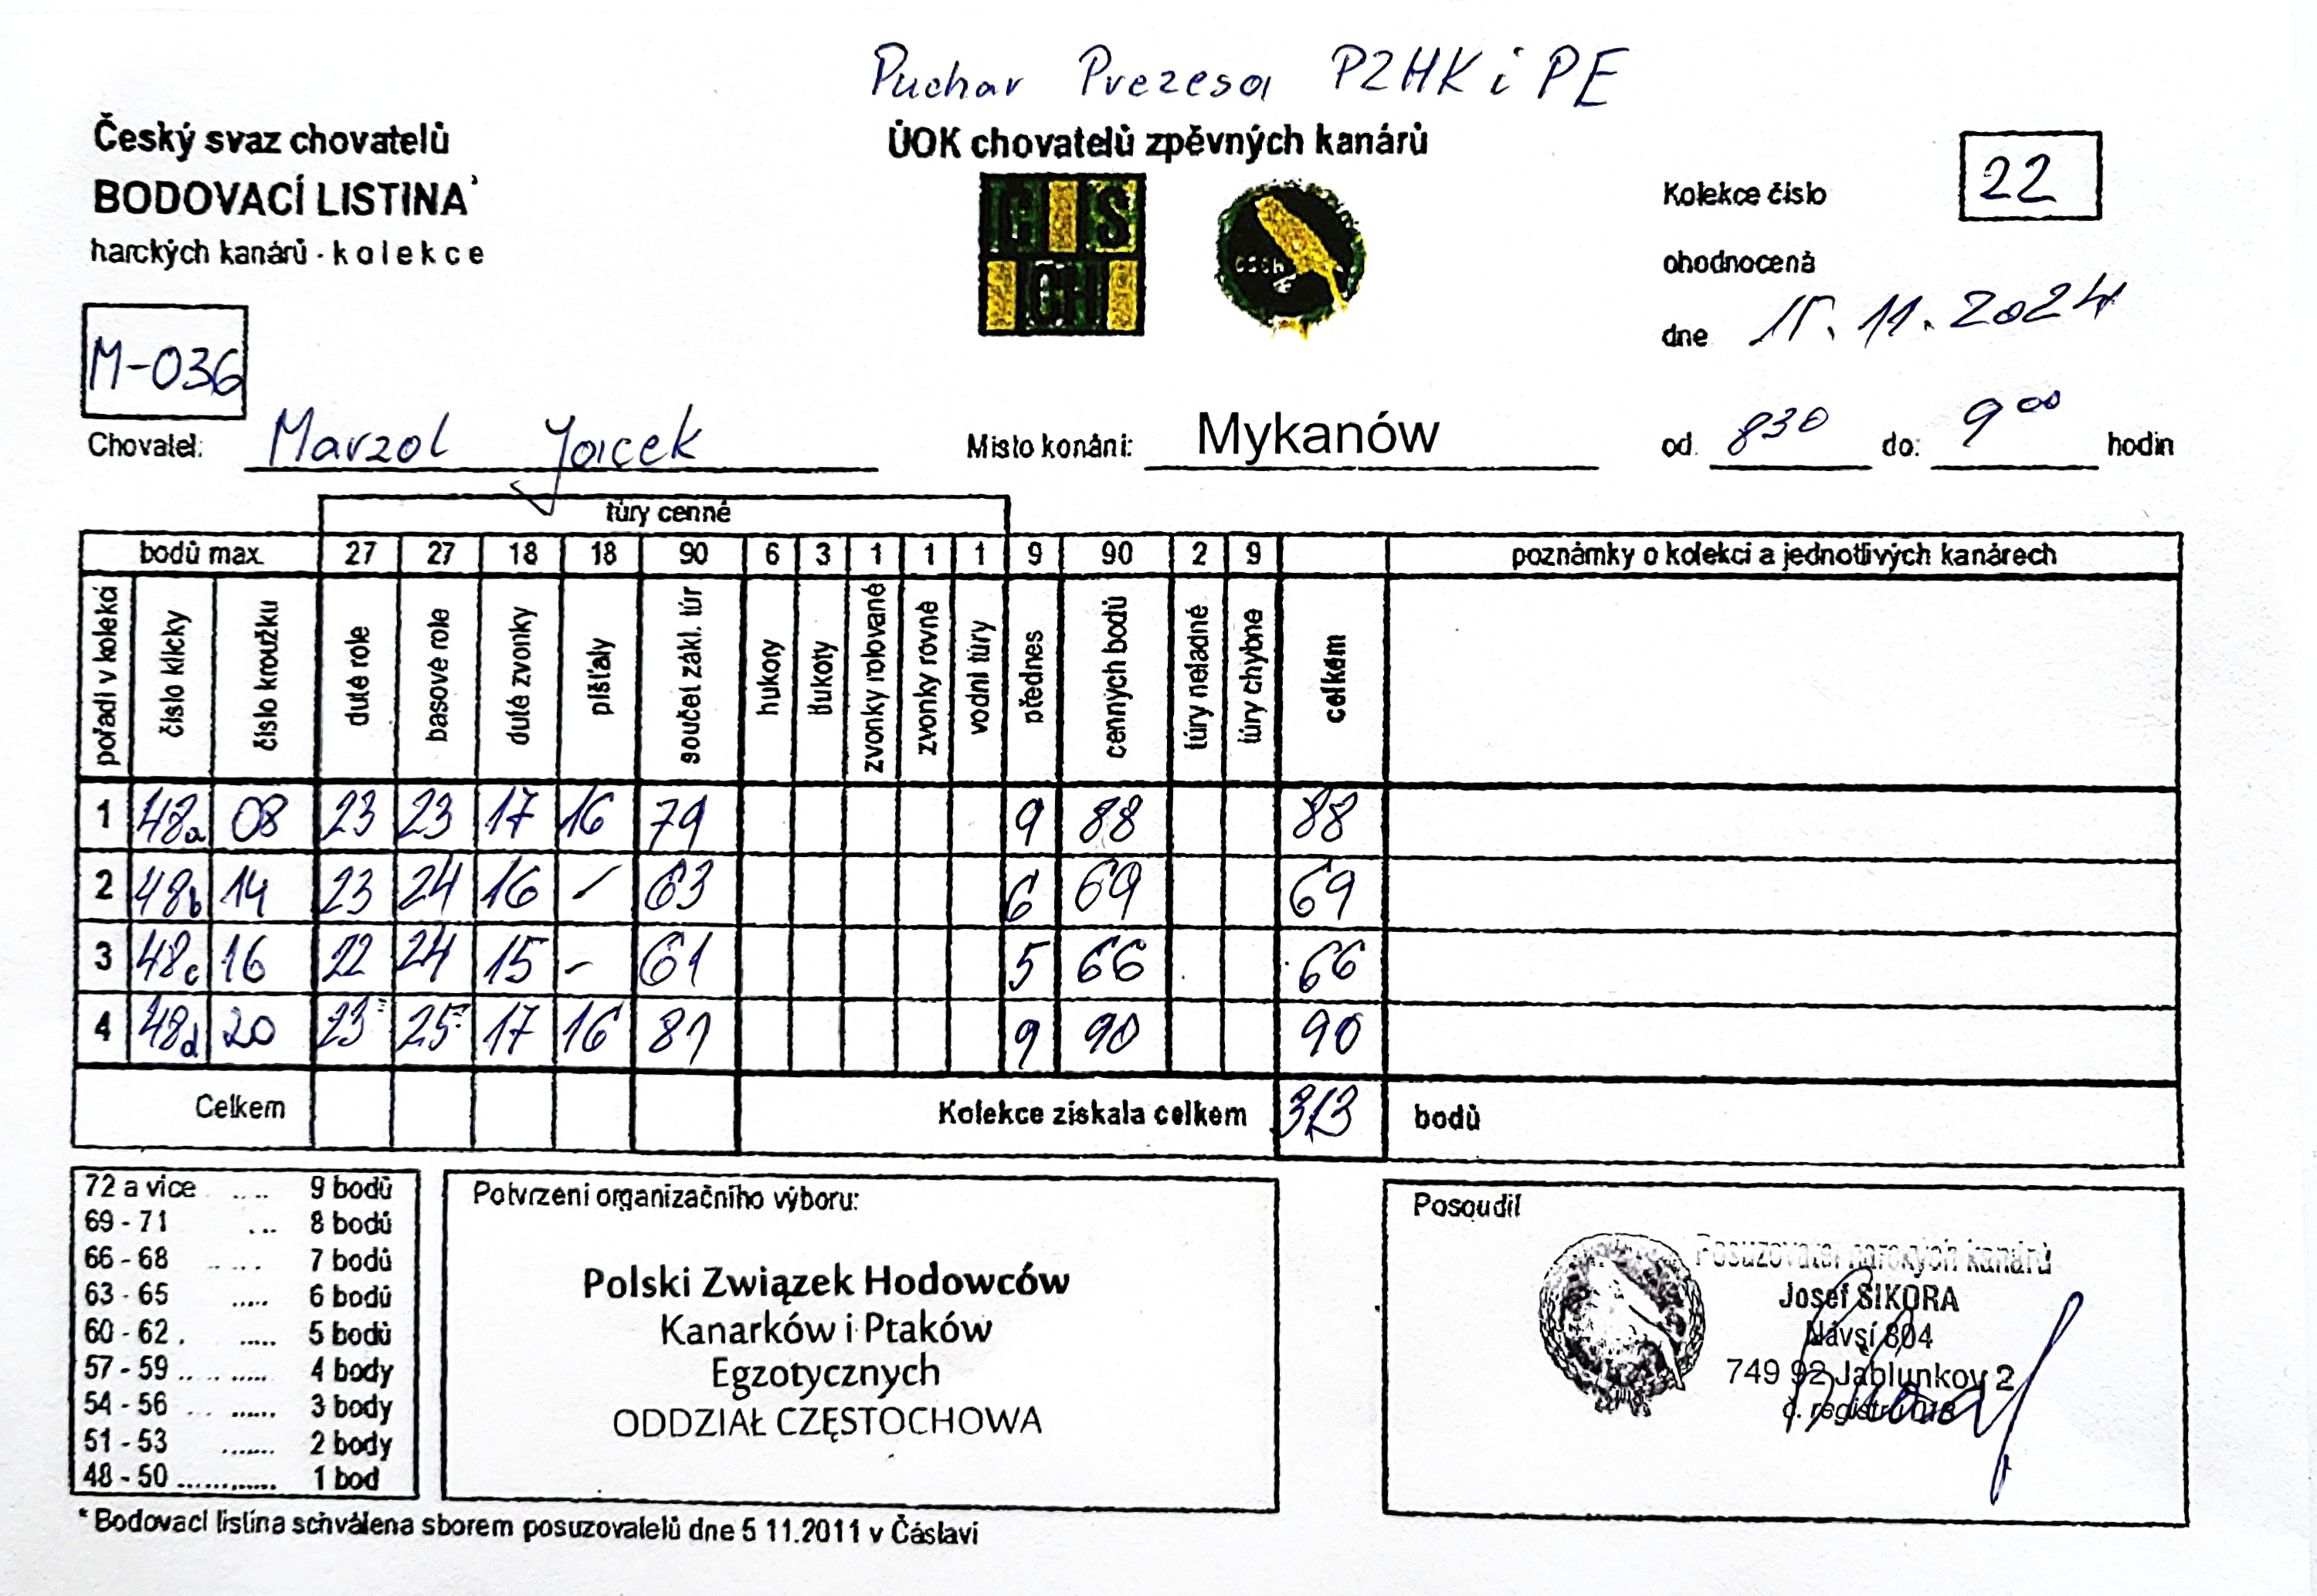 Puchar Prezesa PZHK i PE
Český svaz chovatelů
BODOVACÍ LISTINA*
harckých kanárů - kolekce
ÚOK chovatelů zpěvných kanárů
ČSCH
Kolekce číslo 22
ohodnocená
dne 15.11.2024
M-036
Chovatel: Marzol Jacek
Místo konání: Mykanów
od 8 30 do: 9 00 hodin
túry cenné
bodů max. 27 27 18 18 90 6 3 1 1 1 9 90 2 9 poznámky o kolekci a jednotlivých kanárech
pořadí v kolekci číslo klícky číslo kroužku duté role basové role duté zvonky píšťaly součet zákl. túr hukoty tlukoty zvonky rolované zvonky rovné vodní túry přednes cenných bodů túry neladné túry chybné celkem
1 48a 08 23 23 17 16 79 9 88 88
2 48b 14 23 24 16 - 63 6 69 69
3 48c 16 22 24 15 - 61 5 66 66
4 48d 20 23 25 17 16 81 9 90 90
Celkem Kolekce získala celkem 313 bodů
72 a více ..... 9 bodů
69 - 71 ... 8 bodů
66 - 68 ..... 7 bodů
63 - 65 ..... 6 bodů
60 - 62 ..... 5 bodů
57 - 59 ......... 4 body
54 - 56 ......... 3 body
51 - 53 ....... 2 body
48 - 50 ............ 1 bod
Potvrzení organizačního výboru:
Polski Związek Hodowców
Kanarków i Ptaków
Egzotycznych
ODDZIAŁ CZĘSTOCHOWA
Posoudil
Posuzovatel harckých kanárů
Josef SIKORA
Návsí 804
749 92 Jablunkov 2
č. registru 018
* Bodovací listina schválena sborem posuzovatelů dne 5 11.2011 v Čáslavi